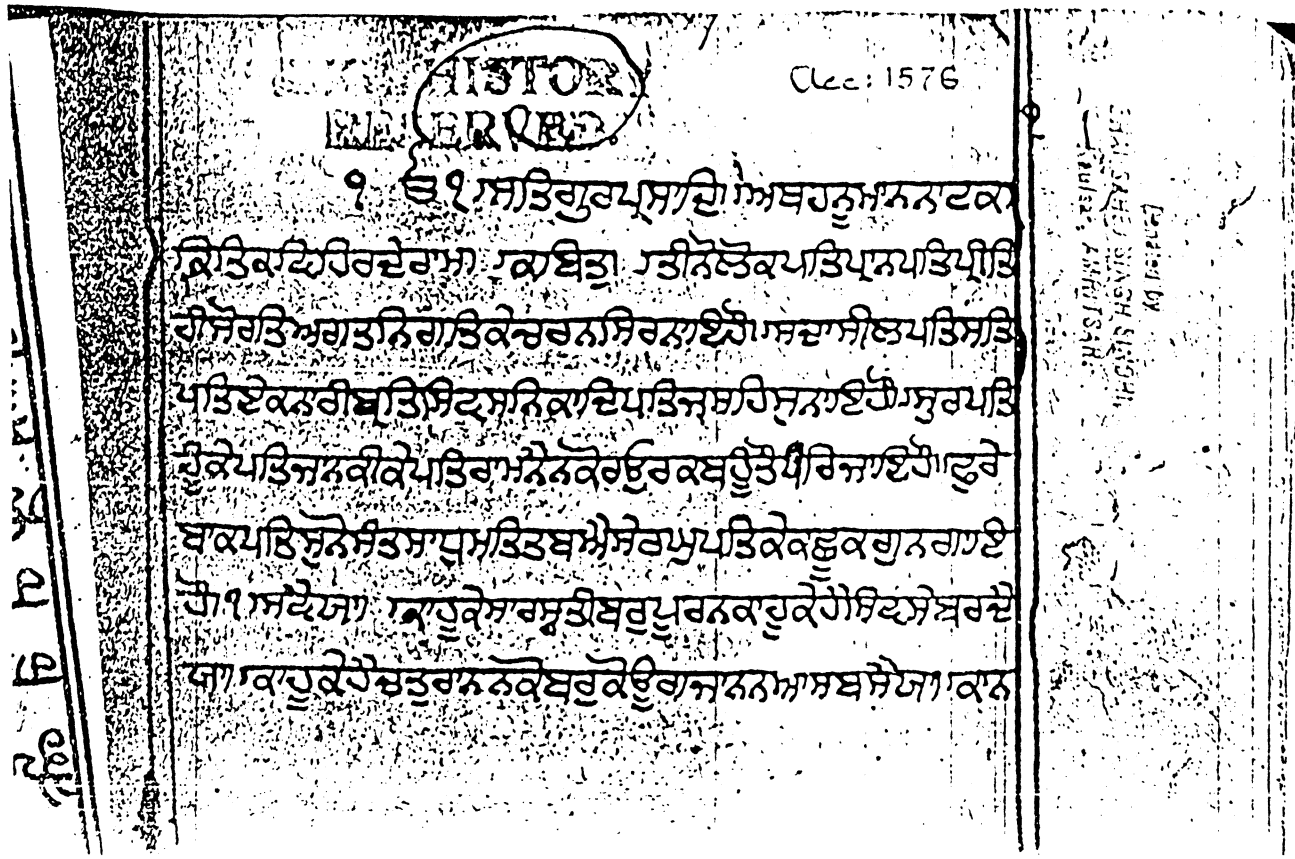 HISTOR
Clcc: 1576
੧ ੴ ਸਤਿਗੁਰਪ੍ਰਸਾਦਿ ॥ ਅਬਹਨੂਮਾਨਨਾਟਕ
ਤੀਨੋਲੋਕਪਤਿਪ੍ਰਾਨਪਤਿਪ੍ਰੀਤਿ
ਹੀਮੇਰਤਿਅਗਤਨਿਗਤਿਕੇਚਰਨਸਿਰਨਾਇਹੌ ॥ ਸਦਾਸੀਲਪਤਿਸਤਿ
ਪਤਿਏਕਨਾਰੀਬ੍ਰਤਿਸਿਵਸਨਿਕਾਦਿਪਤਿਜਸਹਿਸੁਨਾਇਹੌ ॥ ਸੁਰਪਤਿ
ਹੂਕੇਪਤਿਜਾਨਕੀਕੇਪਤਿਰਾਮਨੈਨਕੋਰਓਰਕਬਹੂਤੋਪਰਿਜਾਇਹੌ ॥ ਫੁਰੇ
ਬਾਕਪਤਿਸੁਨੋਸੰਤਸਾਧੁਮਤਿਤਬਐਸੇਰਘੁਪਤਿਕੇਕਛੂਕਗੁਨਗਾਇ
ਹੌ ॥੧॥ ਸਵੈਯਾ ॥ ਕਾਹੂਕੇਸਾਰਸ੍ਵਤੀਬਰੁਪੂਰਨਕਾਹੂਕੇਹੈਸਿਵਸੇ ਬਰਦੈ
ਯਾ ॥ ਕਾਹੂਕੇਹੈਚਤੁਰਾਨਨਕੋਬਰੁਕੋਊਗਜਾਨਨਆਸਬਸੈਯਾ ॥ ਕਾਨ
SINGH
AMRITSAR